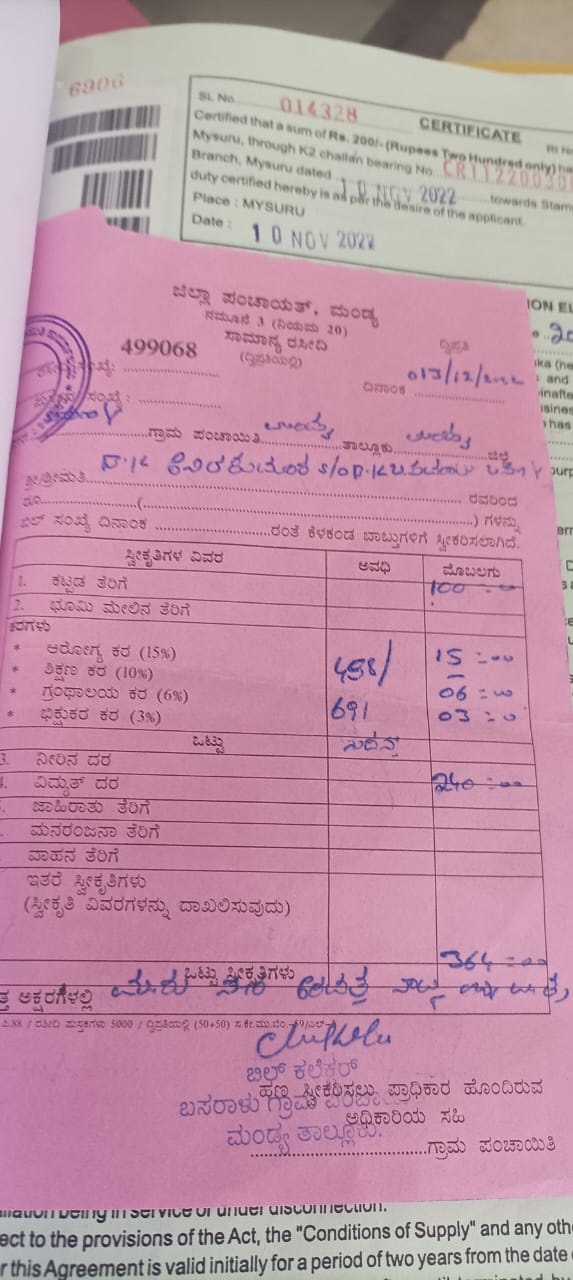 6906
Sl. No. 014328
CERTIFICATE
Certified that a sum of Rs. 200/- (Rupees Two Hundred only) ha
Mysuru, through K2 challan bearing No. CR1122003
Branch, Mysuru dated 10 NOV 2022 towards Stam
duty certified hereby is as per the desire of the applicant.
Place : MYSURU
Date : 10 NOV 2022
ION EL
ಜಿಲ್ಲಾ ಪಂಚಾಯತ್, ಮಂಡ್ಯ
ನಮೂನೆ 3 (ನಿಯಮ 20)
ಸಾಮಾನ್ಯ ರಸೀದಿ
(ದ್ವಿಪ್ರತಿಯಲ್ಲಿ)
ದ್ವಿಪ್ರತಿ
499068
ದಿನಾಂಕ 013/12/2022
ಗ್ರಾಮ ಪಂಚಾಯಿತಿ ತಾಲ್ಲೂಕು ಜಿಲ್ಲೆ
ಶ್ರೀ/ಶ್ರೀಮತಿ ರವರಿಂದ
ರೂ. ( ) ಗಳನ್ನು
ಬಿಲ್ ಸಂಖ್ಯೆ ದಿನಾಂಕ ರಂತೆ ಕೆಳಕಂಡ ಬಾಬ್ತುಗಳಿಗೆ ಸ್ವೀಕರಿಸಲಾಗಿದೆ.
ಸ್ವೀಕೃತಿಗಳ ವಿವರ ಅವಧಿ ಮೊಬಲಗು
1. ಕಟ್ಟಡ ತೆರಿಗೆ 100=00
2. ಭೂಮಿ ಮೇಲಿನ ತೆರಿಗೆ
ಕರಗಳು
* ಆರೋಗ್ಯ ಕರ (15%) 15=00
* ಶಿಕ್ಷಣ ಕರ (10%) 458/ –
* ಗ್ರಂಥಾಲಯ ಕರ (6%) 06=00
* ಭಿಕ್ಷುಕರ ಕರ (3%) 691 03=0
ಒಟ್ಟು
3. ನೀರಿನ ದರ
ವಿದ್ಯುತ್ ದರ 240=00
ಜಾಹಿರಾತು ತೆರಿಗೆ
ಮನರಂಜನಾ ತೆರಿಗೆ
ವಾಹನ ತೆರಿಗೆ
ಇತರೆ ಸ್ವೀಕೃತಿಗಳು
(ಸ್ವೀಕೃತಿ ವಿವರಗಳನ್ನು ದಾಖಲಿಸುವುದು)
ಒಟ್ಟು ಸ್ವೀಕೃತಿಗಳು 364=00
ತ್ತ ಅಕ್ಷರಗಳಲ್ಲಿ ಮೂರು ನೂರ ಅರವತ್ತ ನಾಲ್ಕು
ಬಿಲ್ ಕಲೆಕ್ಟರ್
ಹಣ ಸ್ವೀಕರಿಸಲು ಪ್ರಾಧಿಕಾರ ಹೊಂದಿರುವ
ಬಸರಾಳು ಗ್ರಾಮ
ಅಧಿಕಾರಿಯ ಸಹಿ
ಮಂಡ್ಯ ತಾಲ್ಲೂಕು.
ಗ್ರಾಮ ಪಂಚಾಯಿತಿ
being in service or under disconnection.
ect to the provisions of the Act, the "Conditions of Supply" and any oth
r this Agreement is valid initially for a period of two years from the date